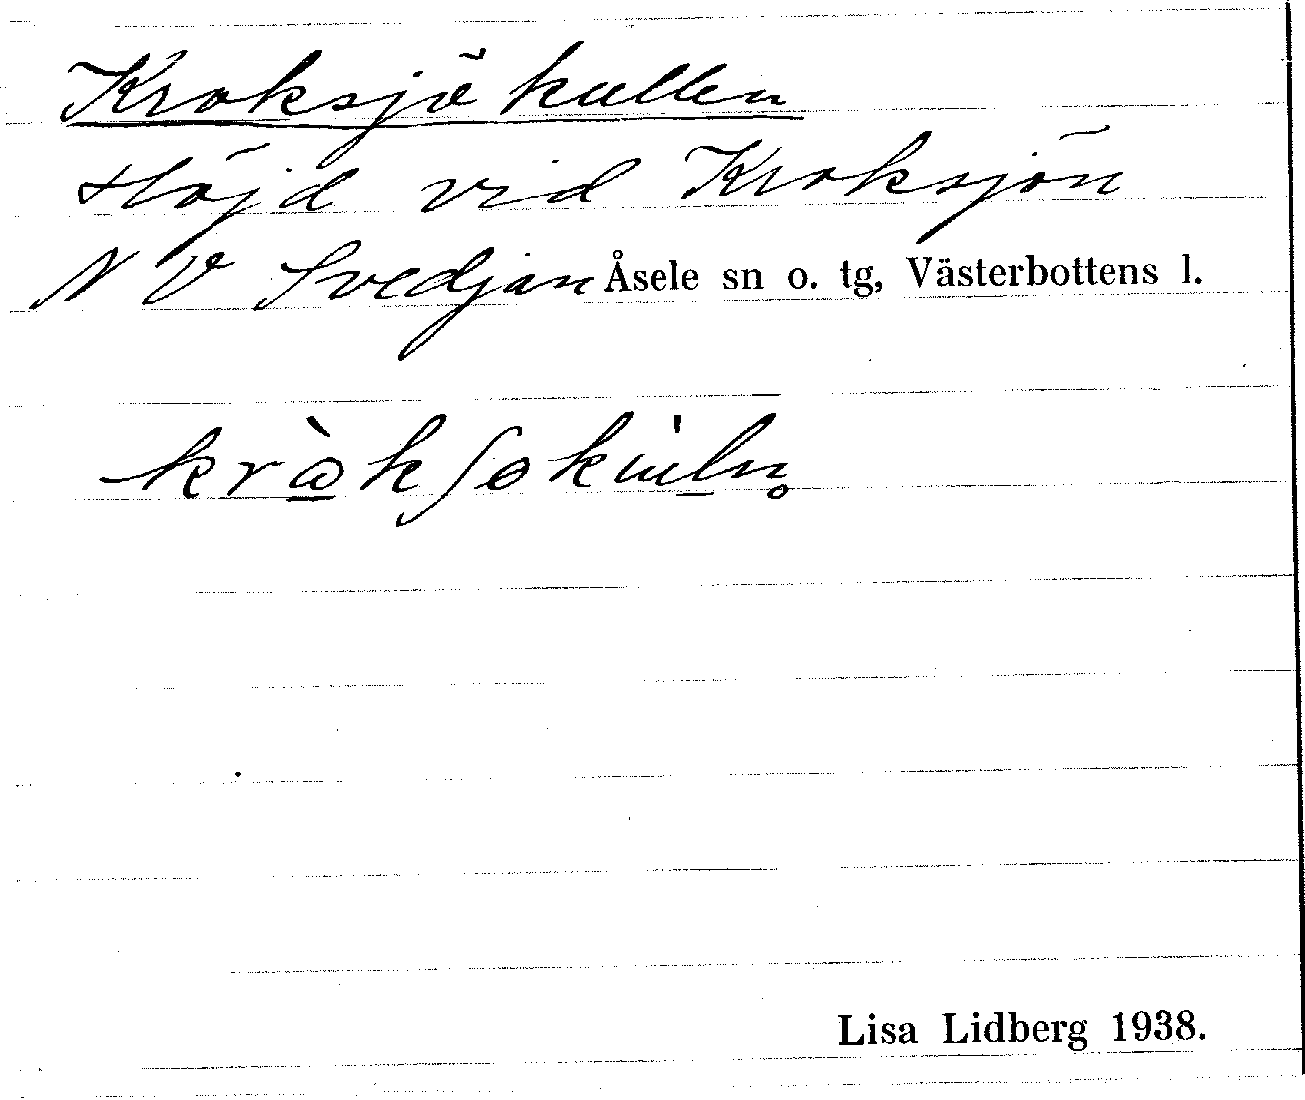 Kroksjökullen
Höjd vid Kroksjön
N V Svedjan Åsele sn o. tg, Västerbottens l.
Lisa Lidberg 1938.